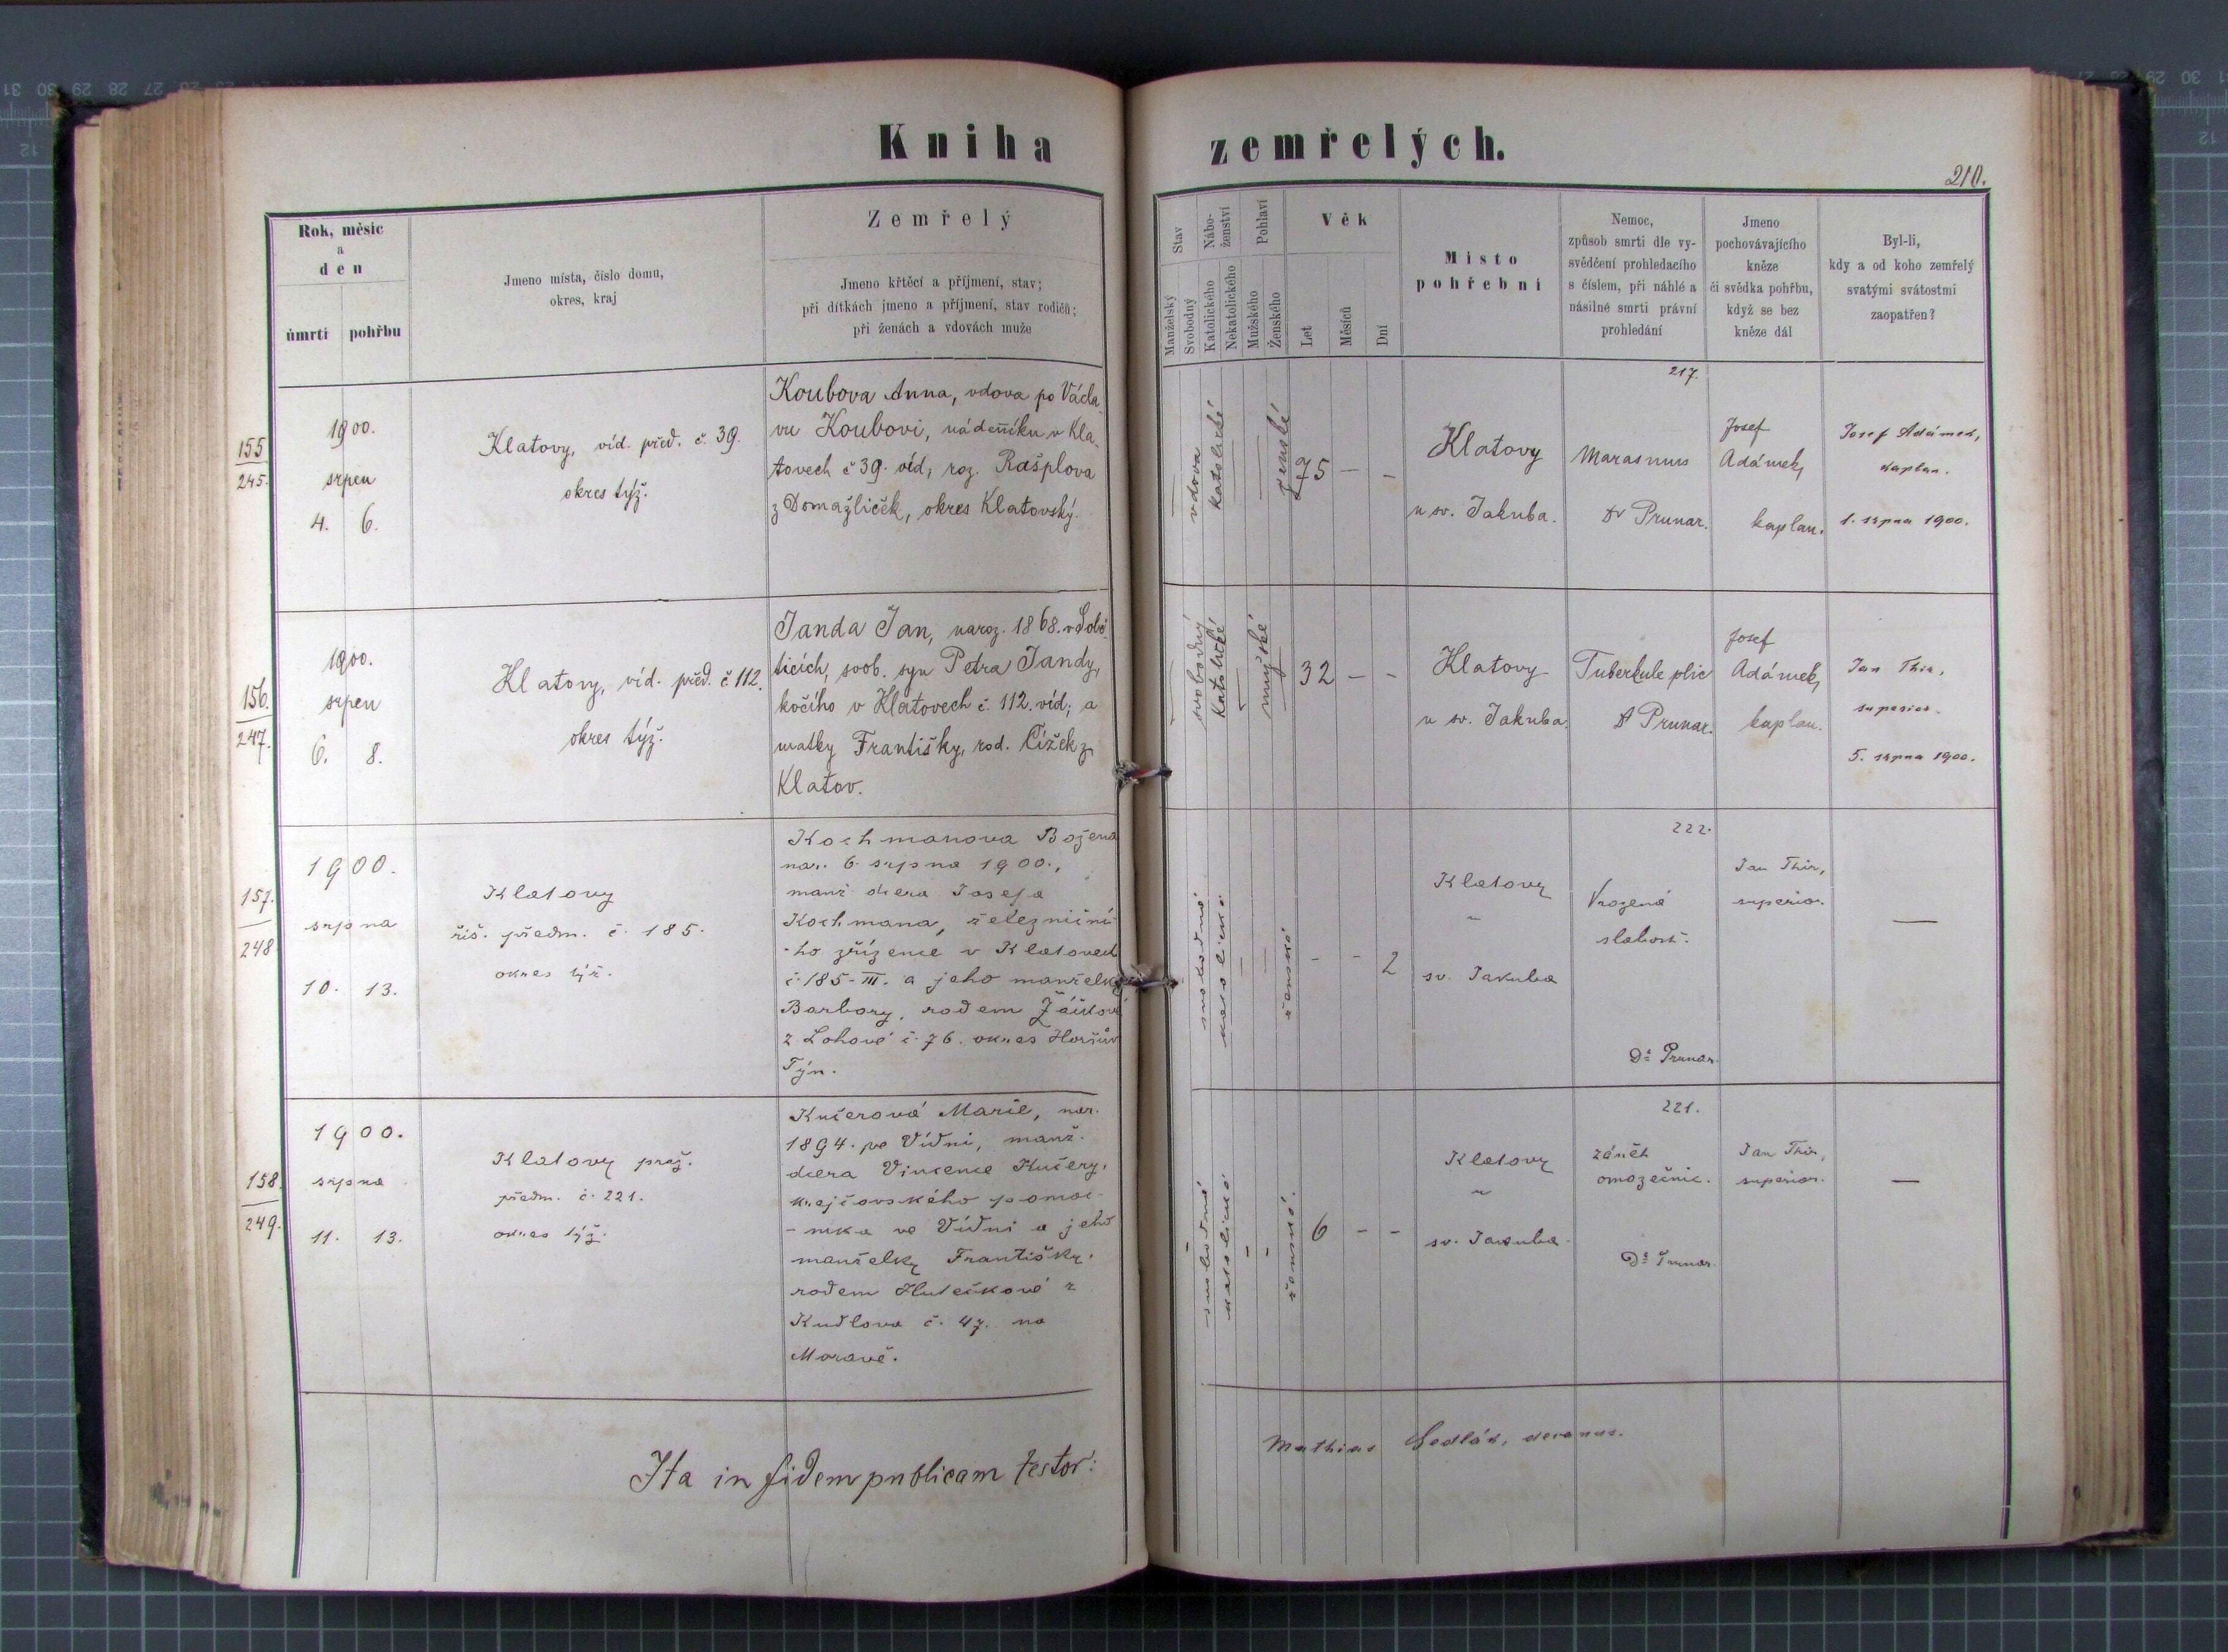 Kniha zemřelých.
210.
Rok, měsíc
a
den
úmrtí pohřbu
Jmeno místa, číslo domu,
okres, kraj
Zemřelý
Jmeno křtěcí a příjmení, stav;
při dítkách jmeno a příjmení, stav rodičů;
při ženách a vdovách muže
Stav
Manželský
Svobodný
Nábo-
ženství
Katolického
Nekatolického
Pohlaví
Mužského
Ženského
Věk
Let
Měsíců
Dní
Místo
pohřební
Nemoc,
způsob smrti dle vy-
svědčení prohledacího
s číslem, při náhlé a
násilné smrti právní
prohledání
Jmeno
pochovávajícího
kněze
či svědka pohřbu,
když se bez
kněze dál
Byl-li,
kdy a od koho zemřelý
svatými svátostmi
zaopatřen?
155
245.
1900.
srpen
4. 6.
Klatovy, víd. před. č. 39.
okres týž.
Koubova Anna, vdova po Václa-
vu Koubovi, nádeníku v Kla-
tovech č 39. víd; roz. Rašplova
z Domažliček, okres Klatovský.
vdova
katolické
ženské
75 — -
Klatovy
u sv. Jakuba.
217.
Marasmus
Dr Prunar.
Josef
Adámek,
kaplan.
Josef Adámek,
kaplan.
1. srpna 1900.
156.
247.
1900.
srpen
6. 8.
Klatovy, víd. před. č 112.
okres týž.
Janda Jan, naroz. 1868. v Sobě-
ticích, svob. syn Petra Jandy,
kočího v Klatovech č. 112. víd; a
matky Františky, rod. Čížek z
Klatov.
svobodný
Katolické
mužské
32 — -
Klatovy
u sv. Jakuba.
Tuberkule plic
Dr Prunar.
Josef
Adámek,
kaplan.
Jan Thir,
superior.
5. srpna 1900.
157.
248
1900.
srpna
10. 13.
Klatovy
říš. předm. č. 185.
okres týž.
Kochmanova Božena
nar. 6. srpna 1900.,
manž dcera Josefa
Kochmana, železniční-
-ho zřízence v Klatovech
č. 185-III. a jeho manželky
Barbory, rodem
z Lohové č. 76. okres Horšův
Týn.
svobodná
katolické
ženské
- - 2
Klatovy
u
sv. Jakuba
222.
Vrozená
slabost.
Dr Prunar.
Jan Thir,
superior.
—
158.
249.
1900.
srpna
11. 13.
Klatovy praž.
předm. č. 221.
okres týž.
Kučerová Marie, nar.
1894. ve Vídni, manž.
dcera Vincence Kučery,
krejčovského pomoc-
-níka ve Vídni a jeho
manželky Františky,
rodem Hutečkové z
Kudlova č. 47. na
Moravě.
svobodná
katolické
ženské.
6 - -
Klatovy
u
sv. Jakuba.
221.
zánět
omozečnic.
Dr Prunar.
Jan Thir,
superior.
—
Ita in fidem publicam testor:
Mathias Sedlák, decanus.